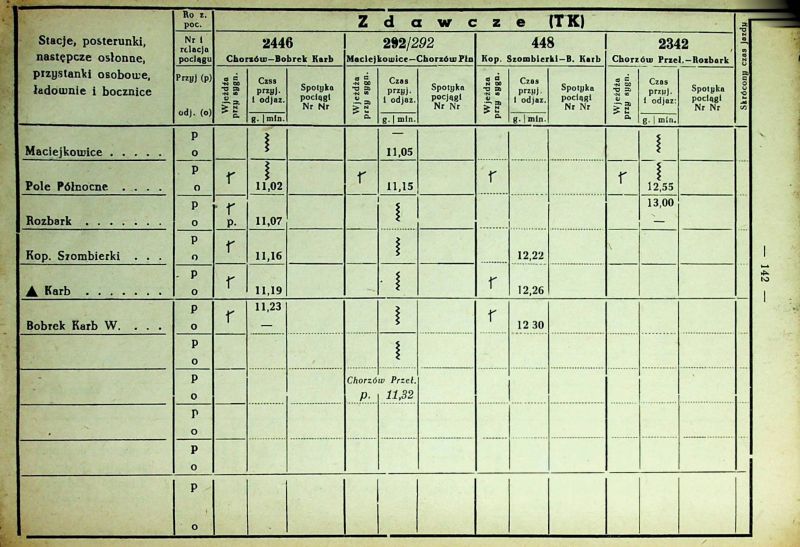 Z d a w c z e (TK)
Stacje, posterunki, następcze osłonne, przystanki osobowe, ładownie i bocznice
Ro z. poc.
Nr i relacja pociągu
Przyj (p)
odj. (o)
2446
Chorzów—Bobrek Karb
292/292
Maciejkowice—Chorzów Płn
448
Kop. Szombierki—B. Karb
2342
Chorzów Przeł.—Rozbark
Skrócony czas jazdy
Wjeżdża przy sygn.
Czas przyj. i odjaz.
g. | min.
Spotyka pociągi Nr Nr
Wjeżdża przy sygn.
Czas przyj. i odjaz.
g. | min.
Spotyka pociągi Nr Nr
Wjeżdża przy sygn.
Czas przyj. i odjaz.
g. | min.
Spotyka pociągi Nr Nr
Wjeżdża przy sygn.
Czas przyj. i odjaz:
g. | min.
Spotyka pociągi Nr Nr
P —
Maciejkowice . . . . . o 11,05
P
Pole Północne . . . . o 11,02 11,15 12,55
P 13,00
Rozbark . . . . . . . o p. 11,07 —
P
Kop. Szombierki . . . o 11,16 12,22
P
▲ Karb . . . . . . . o 11,19 12,26
P 11,23
Bobrek Karb W. . . . o — 12 30
P
o
P Chorzów Przeł.
o p. 11,32
P
o
P
o
P
o
— 142 —